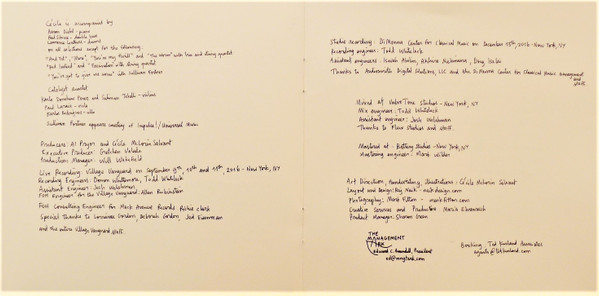 Cécile is accompanied by
Aaron Diehl - piano
Paul Sikivie - double bass
Lawrence Leathers - drums
on all selections except for the following:
"And Yet", "More", "You're my Thrill" and "The Worm" with trio and string quartet
"Red Instead" and "Fascination" with string quartet
"You've got to give me some" with Sullivan Fortner
Catalyst Quartet
Karla Donehew Perez and Suliman Tekalli - violins
Paul Laraia - viola
Karlos Rodriguez - cello
Sullivan Fortner appears courtesy of Impulse! / Universal Music
Producers: Al Pryor and Cécile McLorin Salvant
Executive Producer: Gretchen Valade
Production Manager: Will Wakefield
Live Recording: Village Vanguard on September 9th, 10th and 11th, 2016 - New York, NY
Recording Engineers: Damon Whittemore, Todd Whitelock
Assistant Engineer: Josh Welshman
FOH Engineer for the Village Vanguard: Allan Rubinstein
FOH Consulting Engineer for Mack Avenue Records: Richie Clark
Special Thanks to Lorraine Gordon, Deborah Gordon, Jed Eisenman
and the entire Village Vanguard staff.
Studio Recording: DiMenna Center for Classical Music on December 13th, 2016 - New York, NY
Recording engineer: Todd Whitelock
Assistant engineers:
Thanks to Audiosmith Digital Solutions, LLC and the DiMenna Center for Classical Music Management
and
staff.
Mixed at Valve Tone Studios - New York, NY
Mix engineer: Todd Whitelock
Assistant engineer: Josh Welshman
Thanks to Flux Studios and staff.
Mastered at: Battery Studios - New York, NY
Mastering engineer: Mark Wilder
Art Direction, Handwriting, Illustrations: Cécile McLorin Salvant
Layout and design: Raj Naik - naikdesign.com
Photography: Mark Fitton - markfitton.com
Creative Services and Production: Maria Ehrenreich
Product Manager: Sharon Green
THE
MANAGEMENT
ARK
Edward C. Arrendell, President
ed@mngtark.com
Booking: Ted Kurland Associates
agents@tedkurland.com